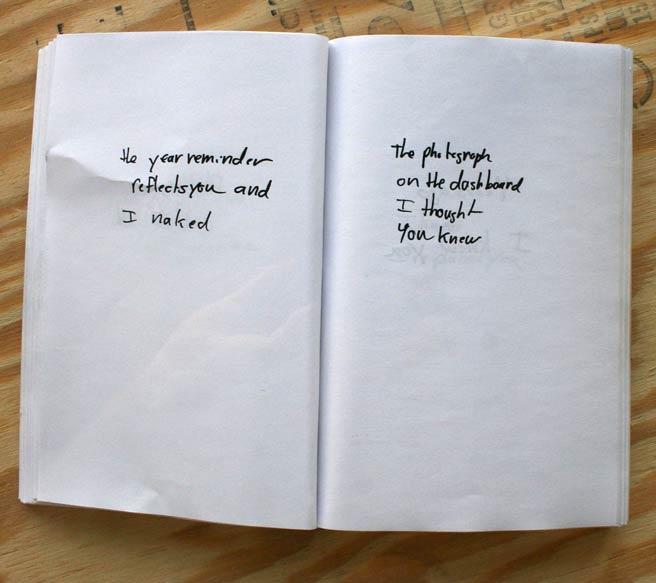 the year reminder
reflects you and
I naked
The photograph
on the dashboard
I thought
You knew